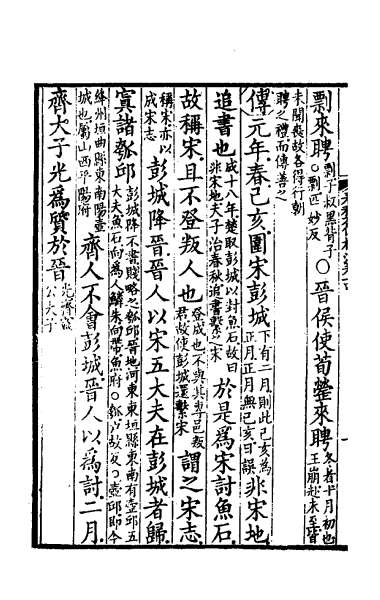 剽來聘剽子叔黑背子○剽匹妙反○晉侯使荀罃來聘冬者十月初也王崩赴未至皆
未聞喪故各得行朝聘之禮而傳善之
傳元年春己亥圍宋彭城下有二月則此己亥為正月正月無己亥日誤非宋地
追書也成十八年楚取彭城以封魚石故曰非宋地夫子治春秋追書繫之宋於是為宋討魚石
故稱宋且不登叛人也登成也不與其專邑叛君故使彭城還繫宋謂之宋志
稱宋亦以成宋志彭城降晉晉人以宋五大夫在彭城者歸
寘諸瓠邱彭城降不書賤略之瓠邱晉地河東東垣縣東南有壺邱五大夫魚石向為人鱗朱向帶魚府○瓠戶故反○壺邱即今
絳州垣曲縣東南陽壺城也屬山西平陽府齊人不會彭城晉人以為討二月
齊大子光為質於晉光齊靈公大子